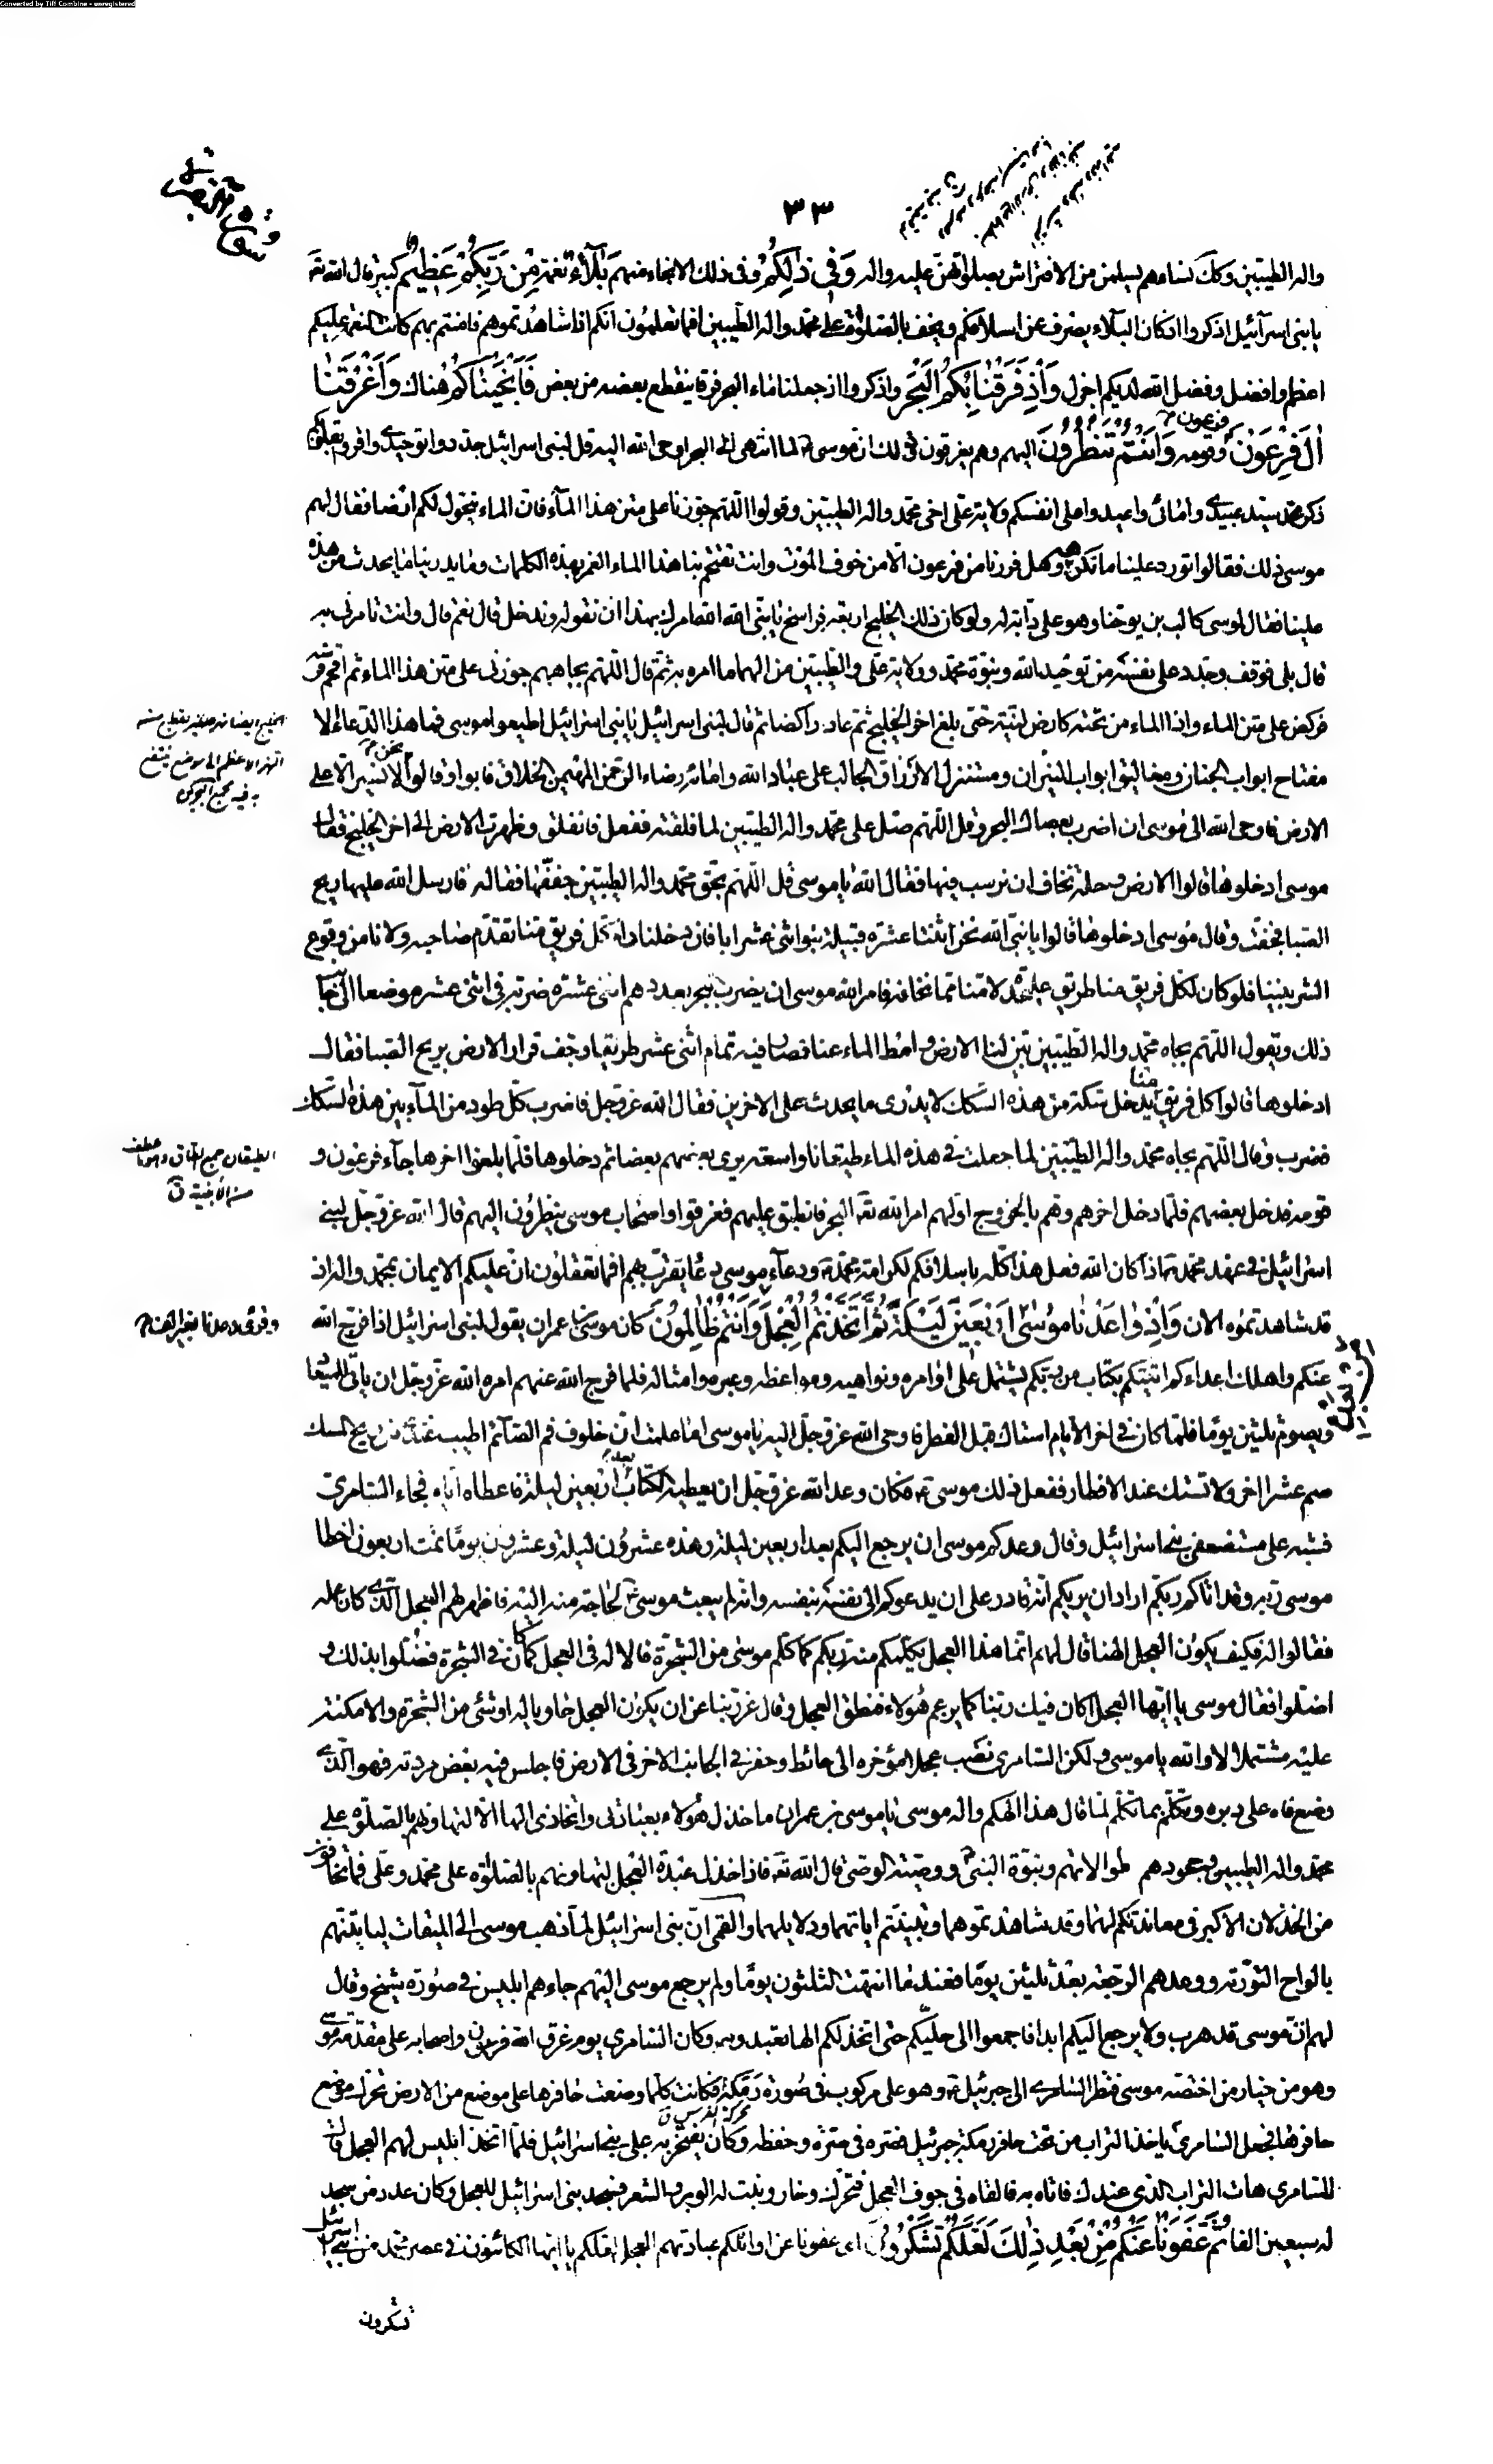 Converted by Tiff Combine - unregistered
٣٣
واله الطيبين وكك نساءهم يسلمن من الافتراش بصلوتهن عليه واله وَفِي ذٰلِكُمْ وفى ذلك الانجاء منهم بَلَاءٌ نعمة مِنْ رَبِّكُمْ عَظِيمٌ كبير قال الله تعَ
يا بنى اسرآئيل اذكروا اذ كان البلاء يصرف عن اسلافكم ويخف بالصلوة على محمد واله الطيبين افما تعلمون انكم اذا شاهدتموهم فامنتم بهم كانت النعمة عليكم
اعظم وافضل وفضل الله لديكم اجزل وَاِذْ فَرَقْنٰا بِكُمُ الْبَحْرَ واذكروا اذ جعلنا ماء البحر فرقا ينقطع بعضه من بعض فَاَنْجَيْنٰاكُمْ هناك وَاَغْرَقْنٰا
اٰلَ فِرْعَوْنَ فرعون وقومه وَاَنْتُمْ تَنْظُرُونَ اليهم وهم يغرقون ذلك ان موسى لما انتهى الى البحر اوحى الله اليه قل لبنى اسرائيل جددوا توحيدى واقروا بقلوبكم
ذكر محمد سيد عبيدى وامائى واعيدوا على انفسكم ولاية على اخى محمد واله الطيبين وقولوا اللهم جوزنا على متن هذا المآء فان الماء يتحول لكم ارضا فقال لهم
موسى ذلك فقالوا تورد علينا ما نكره وهل فررنا من فرعون الا من خوف الموت وانت تقتحم بنا هذا الماء الغمر بهذه الكلمات وما يدرينا ما يحدث من هذه
علينا فقال لموسى كالب بن يوحنا وهو على دابة له وكان ذلك الخليج اربعة فراسخ يا نبى الله الله امرك بهذا ان نقوله وندخل قال نعم قال وانت تامرنى به
قال بلى فوقف وجدد على نفسه من توحيد الله ونبوة محمد وولاية على والطيبين من الهما ما امره به ثم قال اللهم بجاههم جوزنى على متن هذا الماء ثم اقحم فرسه
فركض على متن الماء واذا الماء من تحته كارض لينة حتى بلغ اخر الخليج ثم عاد راكضا ثم قال لبنى اسرائيل يا بنى اسرائيل اطيعوا موسى فما هذا الدعاء الا
مفتاح ابواب الجنان ومغاليق ابواب النيران ومستنزل الارزاق والجالب على عباد الله وامائه رضاء الرحمن المهيمن الخلاق فابوا وقالوا نحن لا نسير الا على
الارض فاوحى الله الى موسى ان اضرب بعصاك البحر وقل اللهم صل على محمد واله الطيبين لما فلقته ففعل فانفلق وظهرت الارض الى اخر الخليج فقال
موسى ادخلوها قالوا الارض وحلة نخاف ان نرسب فيها فقال الله يا موسى قل اللهم بحق محمد واله الطيبين جففها فقالها فارسل الله عليها ريح
الصبا فجفت وقال موسى ادخلوها قالوا يا نبى الله نحن اثنتا عشرة قبيلة بنو اثنى عشر ابا فان دخلنا رام كل فريق منا تقدم صاحبه ولا نامن وقوع
الشر بيننا فلو كان لكل فريق منا طريق على حدة لامنا مما نخافه فامر الله موسى ان يضرب البحر بعددهم اثنى عشرة ضربة فى اثنى عشر موضعا الى جانب
ذلك ويقول اللهم بجاه محمد واله الطيبين بين لنا الارض وامط الماء عنا فصار فيه تمام اثنى عشر طريقا وجف قرار الارض بريح الصبا فقال
ادخلوها قالوا كل فريق منا يدخل سكة من هذه السكك لا يدرى ما يحدث على الاخرين فقال الله عز وجل فاضرب كل طود من المآء بين هذه السكك
فضرب وقال اللهم بجاه محمد واله الطيبين لما جعلت فى هذه الماء طيقانا واسعة يرى بعضهم بعضا ثم دخلوها فلما بلغوا اخرها جآء فرعون و
قومه فدخل بعضهم فلما دخل اخرهم وهم بالخروج اولهم امر الله تعَ البحر فانطبق عليهم فغرقوا واصحاب موسى ينظرون اليهم قال الله عز وجل لبنى
اسرائيل فى عهد محمد فاذا كان الله فعل هذا كله باسلافكم لكرامة محمد ودعآء موسى دعا يقرب بهم افما تعقلون ان عليكم الايمان بمحمد واله اذ
قد شاهدتموه الان وَاِذْ وٰاعَدْنٰا مُوسٰى اَرْبَعِينَ لَيْلَةً ثُمَّ اتَّخَذْتُمُ الْعِجْلَ وَاَنْتُمْ ظٰالِمُونَ كان موسى بن عمران يقول لبنى اسرائيل اذا فرج الله
عنكم واهلك اعداءكم اتيتكم بكتاب من ربكم يشتمل على اوامره ونواهيه ومواعظه وعبره وامثاله فلما فرج الله عنهم امره الله عز وجل ان ياتى الميعاد
ويصوم ثلثين يوما فلما كان فى اخر الايام استاك قبل الفطر فاوحى الله عز وجل اليه يا موسى اما علمت ان خلوف فم الصآئم اطيب عندى من ريح المسك
صم عشرا اخر ولا تستك عند الافطار ففعل ذلك موسى فكان وعد الله عز وجل ان يعطيه الكتاب بعد اربعين ليلة فاعطاه اياه فجاء السامرى
فشبه على مستضعفى بنى اسرائيل وقال وعدكم موسى ان يرجع اليكم بعد اربعين ليلة وهذه عشرون ليلة وعشرون يوما تمت اربعون اخطا
موسى ربه وقد اتاكم ربكم اراد ان يريكم انه قادر على ان يدعوكم الى نفسه بنفسه وانه لم يبعث موسى لحاجة منه اليه فاظهر لهم العجل الذى كان عمله
فقالوا له فكيف يكون العجل الهنا قال لهم انما هذا العجل يكلمكم منه ربكم كما كلم موسى من الشجرة فالاله فى العجل كما كان فى الشجرة فضلوا بذلك و
اضلوا فقال موسى يا ايها العجل اكان فيك ربنا كما يزعم هؤلاء فنطق العجل وقال عز ربنا عن ان يكون العجل حاويا له او شئ من الشجرة والامكنة
عليه مشتملا لا والله يا موسى ولكن السامرى نصب عجلا مؤخره الى حائط وحفر فى الجانب الاخر فى الارض فاجلس فيه بعض مردته فهو الذى
وضع فاه على دبره وتكلم بما تكلم لما قال هذا الهكم واله موسى يا موسى بن عمران ما خذل هؤلاء بعبادتى واتخاذى الها الا لتهاونهم بالصلوة على
محمد واله الطيبين وجحودهم موالاتهم وبنبوة النبى ووصية الوصى قال الله تعَ فاذا خذل عبدة العجل لتهاونهم بالصلوة على محمد وعلى فما تخافون
من الخذلان الاكبر فى معاندتكم لهما وقد شاهدتموهما وتبينتم اياتهما ودلايلهما والقمى ان بنى اسرائيل لما ذهب موسى الى الميقات لياتيهم
بالواح التورية ووعدهم الرجعة بعد ثلثين يوما فعند ما انتهت الثلثون يوما ولم يرجع موسى اليهم جاءهم ابليس فى صورة شيخ وقال
لهم ان موسى قد هرب ولا يرجع اليكم ابدا فاجمعوا الى حليكم حتى اتخذ لكم الها تعبدونه وكان السامرى يوم غرق الله فرعون واصحابه على مقدمة موسى
وهو من خيار من اختصه موسى فنظر السامرى الى جبرئيل وهو على مركوب فى صورة رمكة فكانت كلما وضعت حافرها على موضع من الارض تحرك موضع
حافرها فجعل السامرى ياخذ التراب من تحت حافر رمكة جبرئيل فصره فى صرة وحفظه وكان يفتخر به على بنى اسرائيل فلما اتخذ ابليس لهم العجل قال
للسامرى هات التراب الذى عندك فاتاه به فالقاه فى جوف العجل فتحرك وخار ونبت له الوبر والشعر فسجد بنى اسرائيل للعجل وكان عدد من سجد
له سبعين الفا ثُمَّ عَفَوْنٰا عَنْكُمْ مِنْ بَعْدِ ذٰلِكَ لَعَلَّكُمْ تَشْكُرُونَ اى عفونا عن اوائلكم عبادتهم العجل لعلكم يا ايها الكائنون فى عصر محمد من بنى اسرائيل
تشكرون